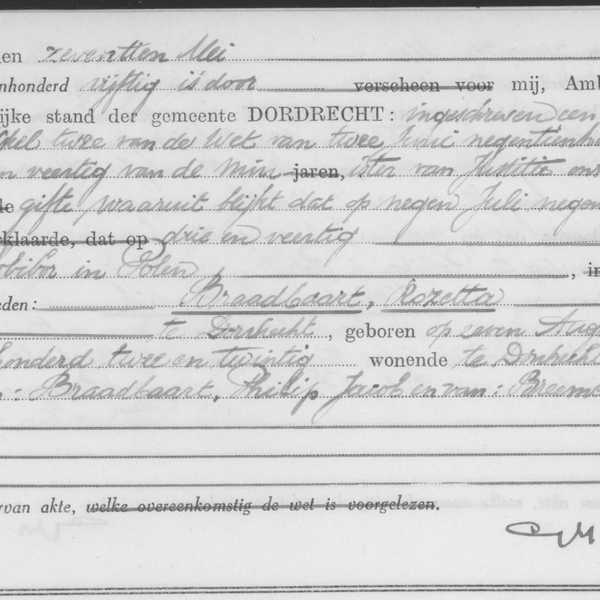 en zeventien Mei
nhonderd vijftig is door verscheen voor mij, Amb
ijke stand der gemeente DORDRECHT: ingeschreven een
kel twee van de Wet van twee Juni negentienho
n veertig van de Mini jaren, ister van Justitie
de gifte waaruit blijkt dat op negen Juli negen
eklaarde, dat op drie en veertig
obibor in Polen , in
eden: Braadbaart, Rozetta
te Dordrecht, geboren op zeven Aug
honderd twee en twintig wonende te Dordrecht
n: Braadbaart, Philip Jacob en van: Breem
rvan akte, welke overeenkomstig de wet is voorgelezen.